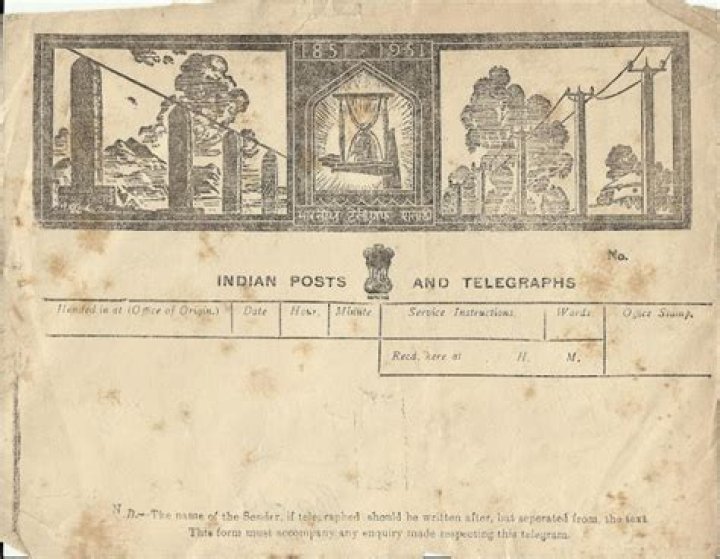 1851 - 1951
भारतीय टेलीग्राफ शताब्दी
No.
INDIAN POSTS AND TELEGRAPHS
Handed in at (Office of Origin.) Date Hour. Minute Service Instructions. Words. Office Stamp.
Recd. here at H. M.
N.B.—The name of the Sender, if telegraphed should be written after, but seperated from, the text
This form must accompany any enquiry made respecting this telegram.